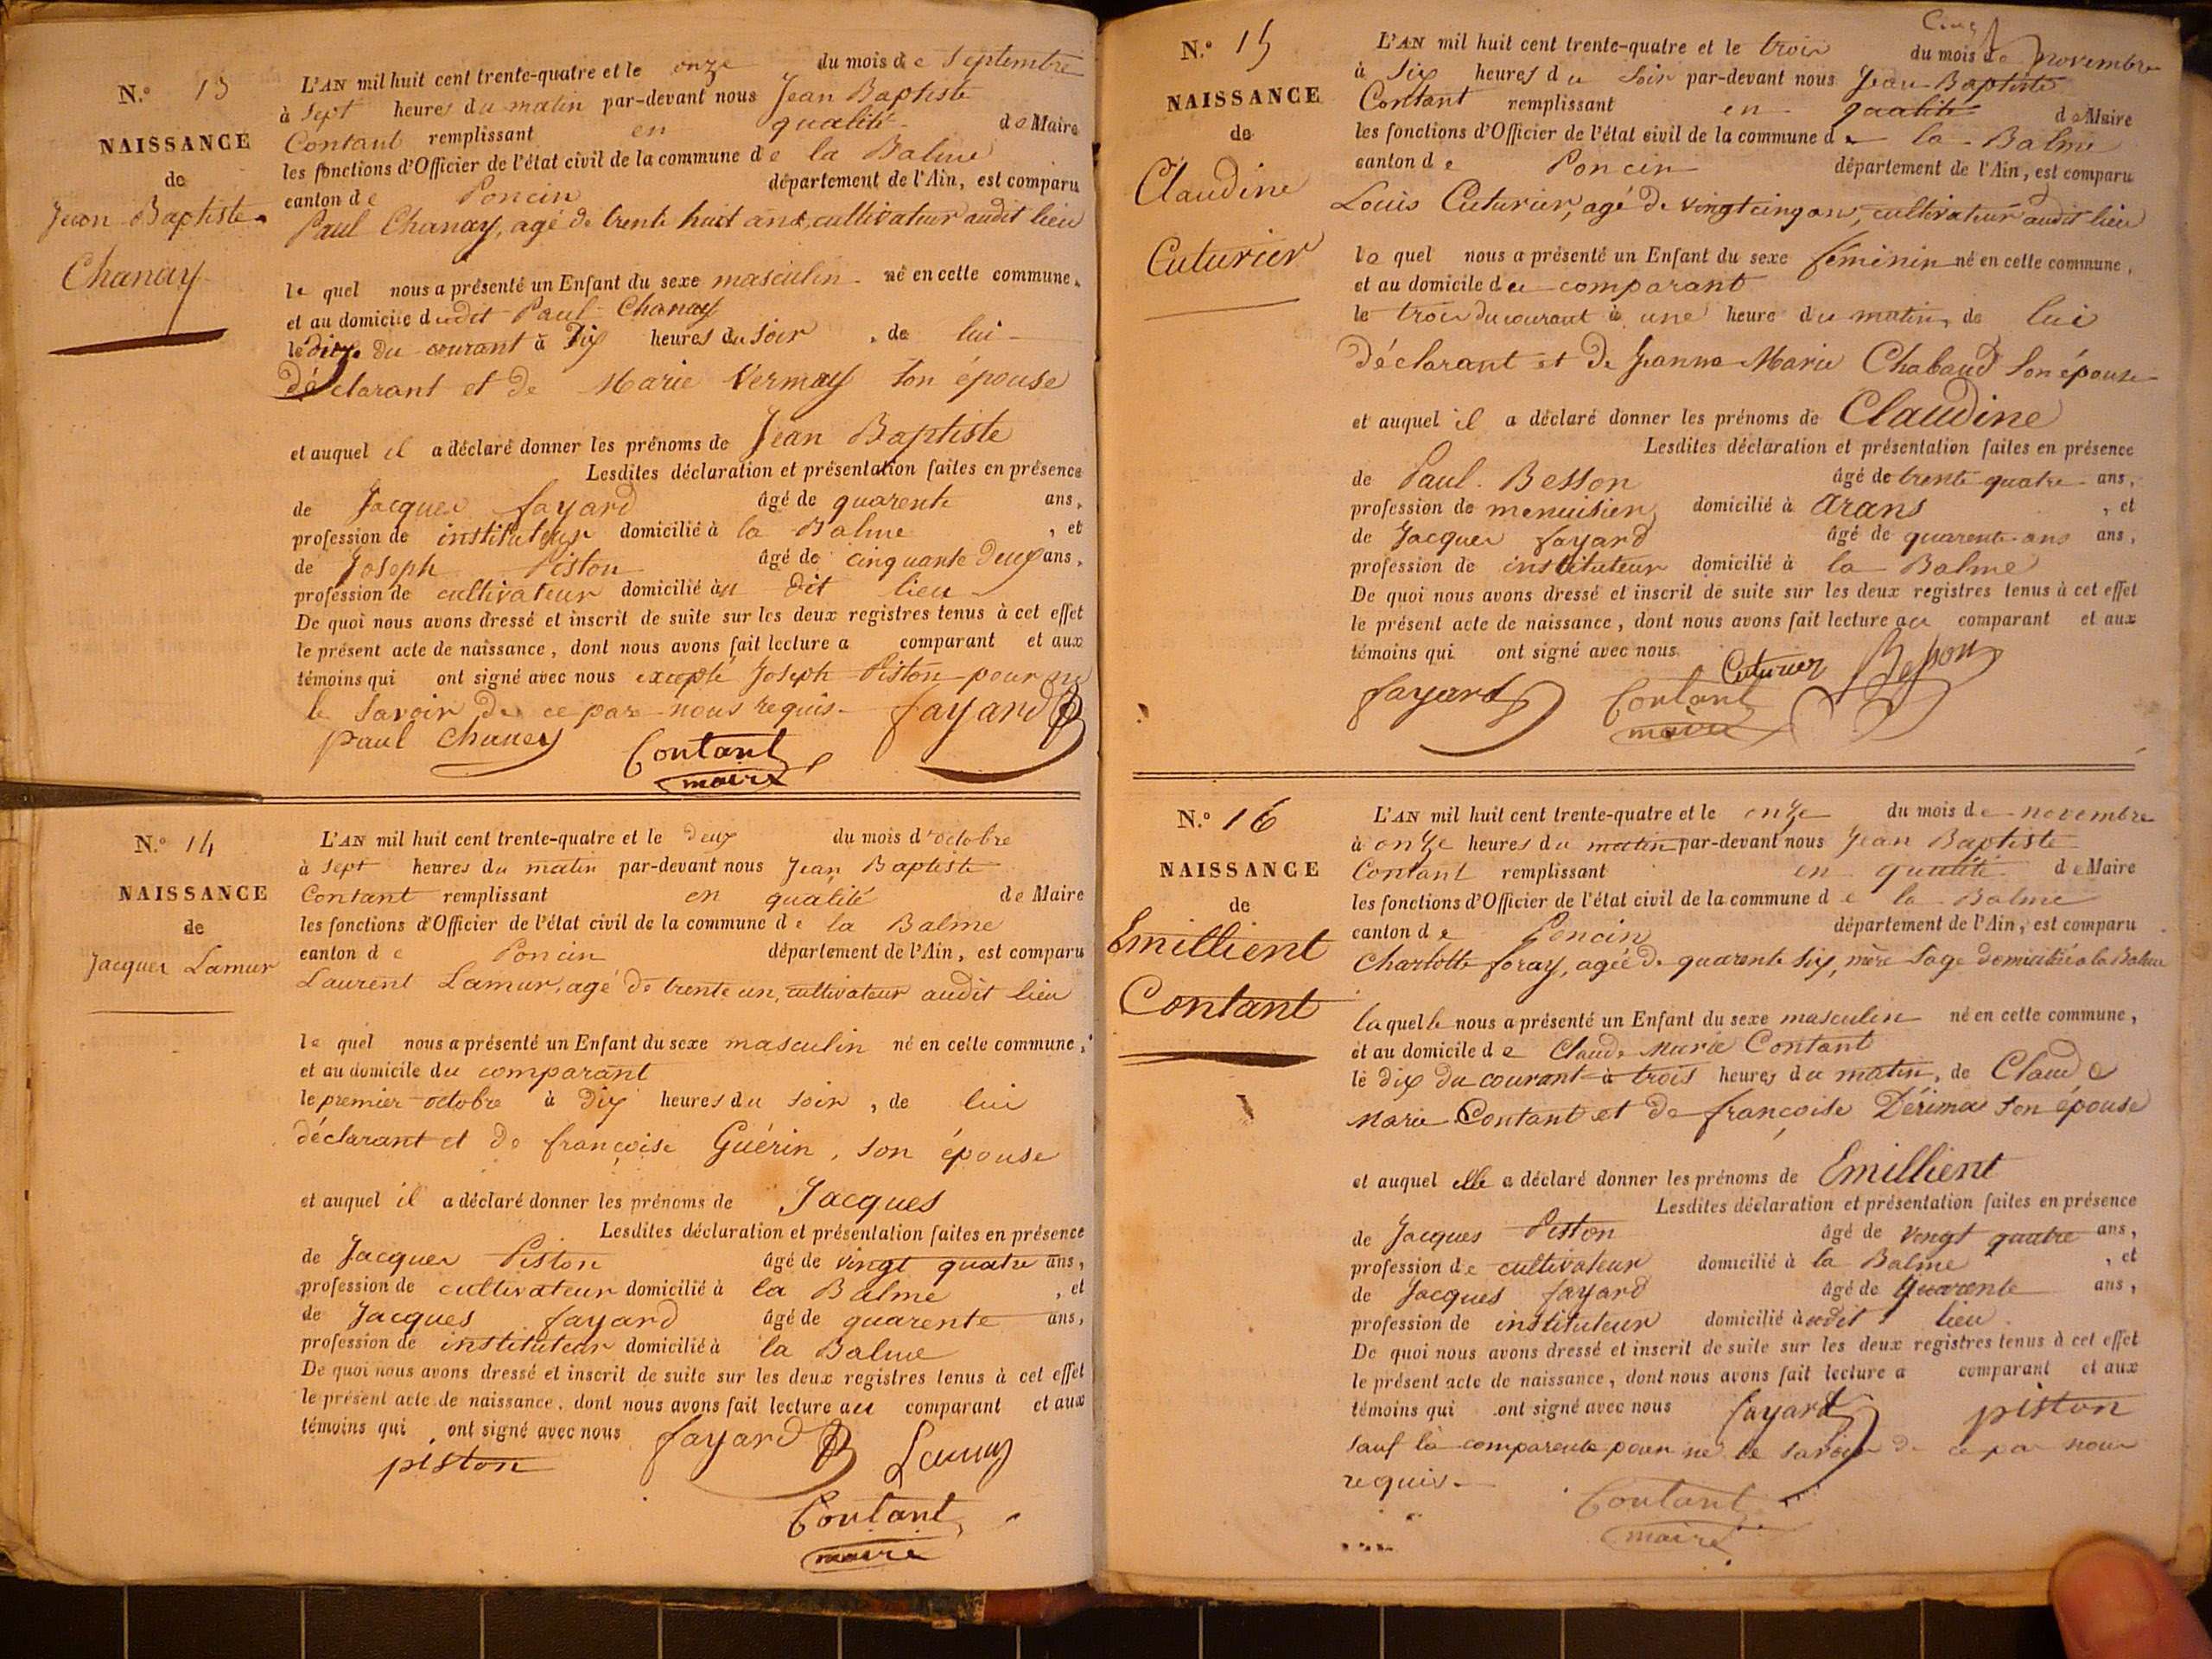 N.° 13
NAISSANCE
de
Jean Baptiste
Chanay
L'AN mil huit cent trente-quatre et le onze du mois de Septembre
à Sept heures du matin par-devant nous Jean Baptiste
Contant remplissant en qualité de Maire
les fonctions d'Officier de l'état civil de la commune de la Balme
canton de Poncin département de l'Ain, est comparu
Paul Chanay, agé de trente huit ans, cultivateur audit lieu
le quel nous a présenté un Enfant du sexe masculin né en cette commune,
et au domicile dudit Paul Chanay
le dix du courant à Dix heures du soir, de lui
déclarant et de Marie Vermay son épouse
et auquel il a déclaré donner les prénoms de Jean Baptiste
Lesdites déclaration et présentation faites en présence
de Jacques fayard âgé de quarente ans,
profession de instituteur domicilié à la Balme, et
de Joseph Piston âgé de cinquante deux ans,
profession de cultivateur domicilié au dit lieu
De quoi nous avons dressé et inscrit de suite sur les deux registres tenus à cet effet
le présent acte de naissance, dont nous avons fait lecture a comparant et aux
témoins qui ont signé avec nous excepté Joseph Piston pour ne
le savoir de ce par nous requis. fayard
paul Chanay Contant
maire
N.° 14
NAISSANCE
de
Jacques Lamur
L'AN mil huit cent trente-quatre et le deux du mois d'octobre
à sept heures du matin par-devant nous Jean Baptiste
Contant remplissant en qualité de Maire
les fonctions d'Officier de l'état civil de la commune de la Balme
canton de Poncin département de l'Ain, est comparu
Laurent Lamur, agé de trente un, cultivateur audit lieu
le quel nous a présenté un Enfant du sexe masculin né en cette commune,
et au domicile du comparant
le premier octobre à Dix heures du soir, de lui
déclarant et de françoise Guérin, son épouse
et auquel il a déclaré donner les prénoms de Jacques
Lesdites déclaration et présentation faites en présence
de Jacques Piston âgé de vingt quatre ans,
profession de cultivateur domicilié à la Balme, et
de Jacques fayard âgé de quarente ans,
profession de instituteur domicilié à la Balme
De quoi nous avons dressé et inscrit de suite sur les deux registres tenus à cet effet
le présent acte de naissance, dont nous avons fait lecture au comparant et aux
témoins qui ont signé avec nous fayard
piston Lamur
Contant
maire
N.° 15
NAISSANCE
de
Claudine
Cuturier
Cinq
L'AN mil huit cent trente-quatre et le trois du mois de novembre
à Six heures du Soir par-devant nous Jean Baptiste
Contant remplissant en qualité de Maire
les fonctions d'Officier de l'état civil de la commune de la Balme
canton de Poncin département de l'Ain, est comparu
Louis Cuturier, agé de vingt cinq ans, cultivateur audit lieu
le quel nous a présenté un Enfant du sexe féminin né en cette commune,
et au domicile du comparant
le trois du courant à une heure du matin, de lui
déclarant et de Jeanne Marie Chabaud son épouse
et auquel il a déclaré donner les prénoms de Claudine
Lesdites déclaration et présentation faites en présence
de Paul Besson âgé de trente quatre ans,
profession de menuisier domicilié à Arans, et
de Jacques fayard âgé de quarente ans ans,
profession de instituteur domicilié à la Balme
De quoi nous avons dressé et inscrit de suite sur les deux registres tenus à cet effet
le présent acte de naissance, dont nous avons fait lecture au comparant et aux
témoins qui ont signé avec nous Cuturier Besson
fayard Contant
maire
N.° 16
NAISSANCE
de
Emillient
Contant
L'AN mil huit cent trente-quatre et le onze du mois de novembre
à onze heures du matin par-devant nous Jean Baptiste
Contant remplissant en qualité de Maire
les fonctions d'Officier de l'état civil de la commune de la Balme
canton de Poncin département de l'Ain, est comparu
Charlotte foray, agée de quarente six, mère sage domiciliée à la Balme
laquelle nous a présenté un Enfant du sexe masculin né en cette commune,
et au domicile de Claude Marie Contant
le dix du courant à trois heures du matin, de Claude
Marie Contant et de françoise Dérima son épouse
et auquel elle a déclaré donner les prénoms de Emillient
Lesdites déclaration et présentation faites en présence
de Jacques Piston âgé de vingt quatre ans,
profession de cultivateur domicilié à la Balme, et
de Jacques fayard âgé de quarente ans,
profession de instituteur domicilié audit lieu
De quoi nous avons dressé et inscrit de suite sur les deux registres tenus à cet effet
le présent acte de naissance, dont nous avons fait lecture a comparant et aux
témoins qui ont signé avec nous fayard piston
sauf la comparente pour ne le savoir de ce par nous
requis.
Contant
maire